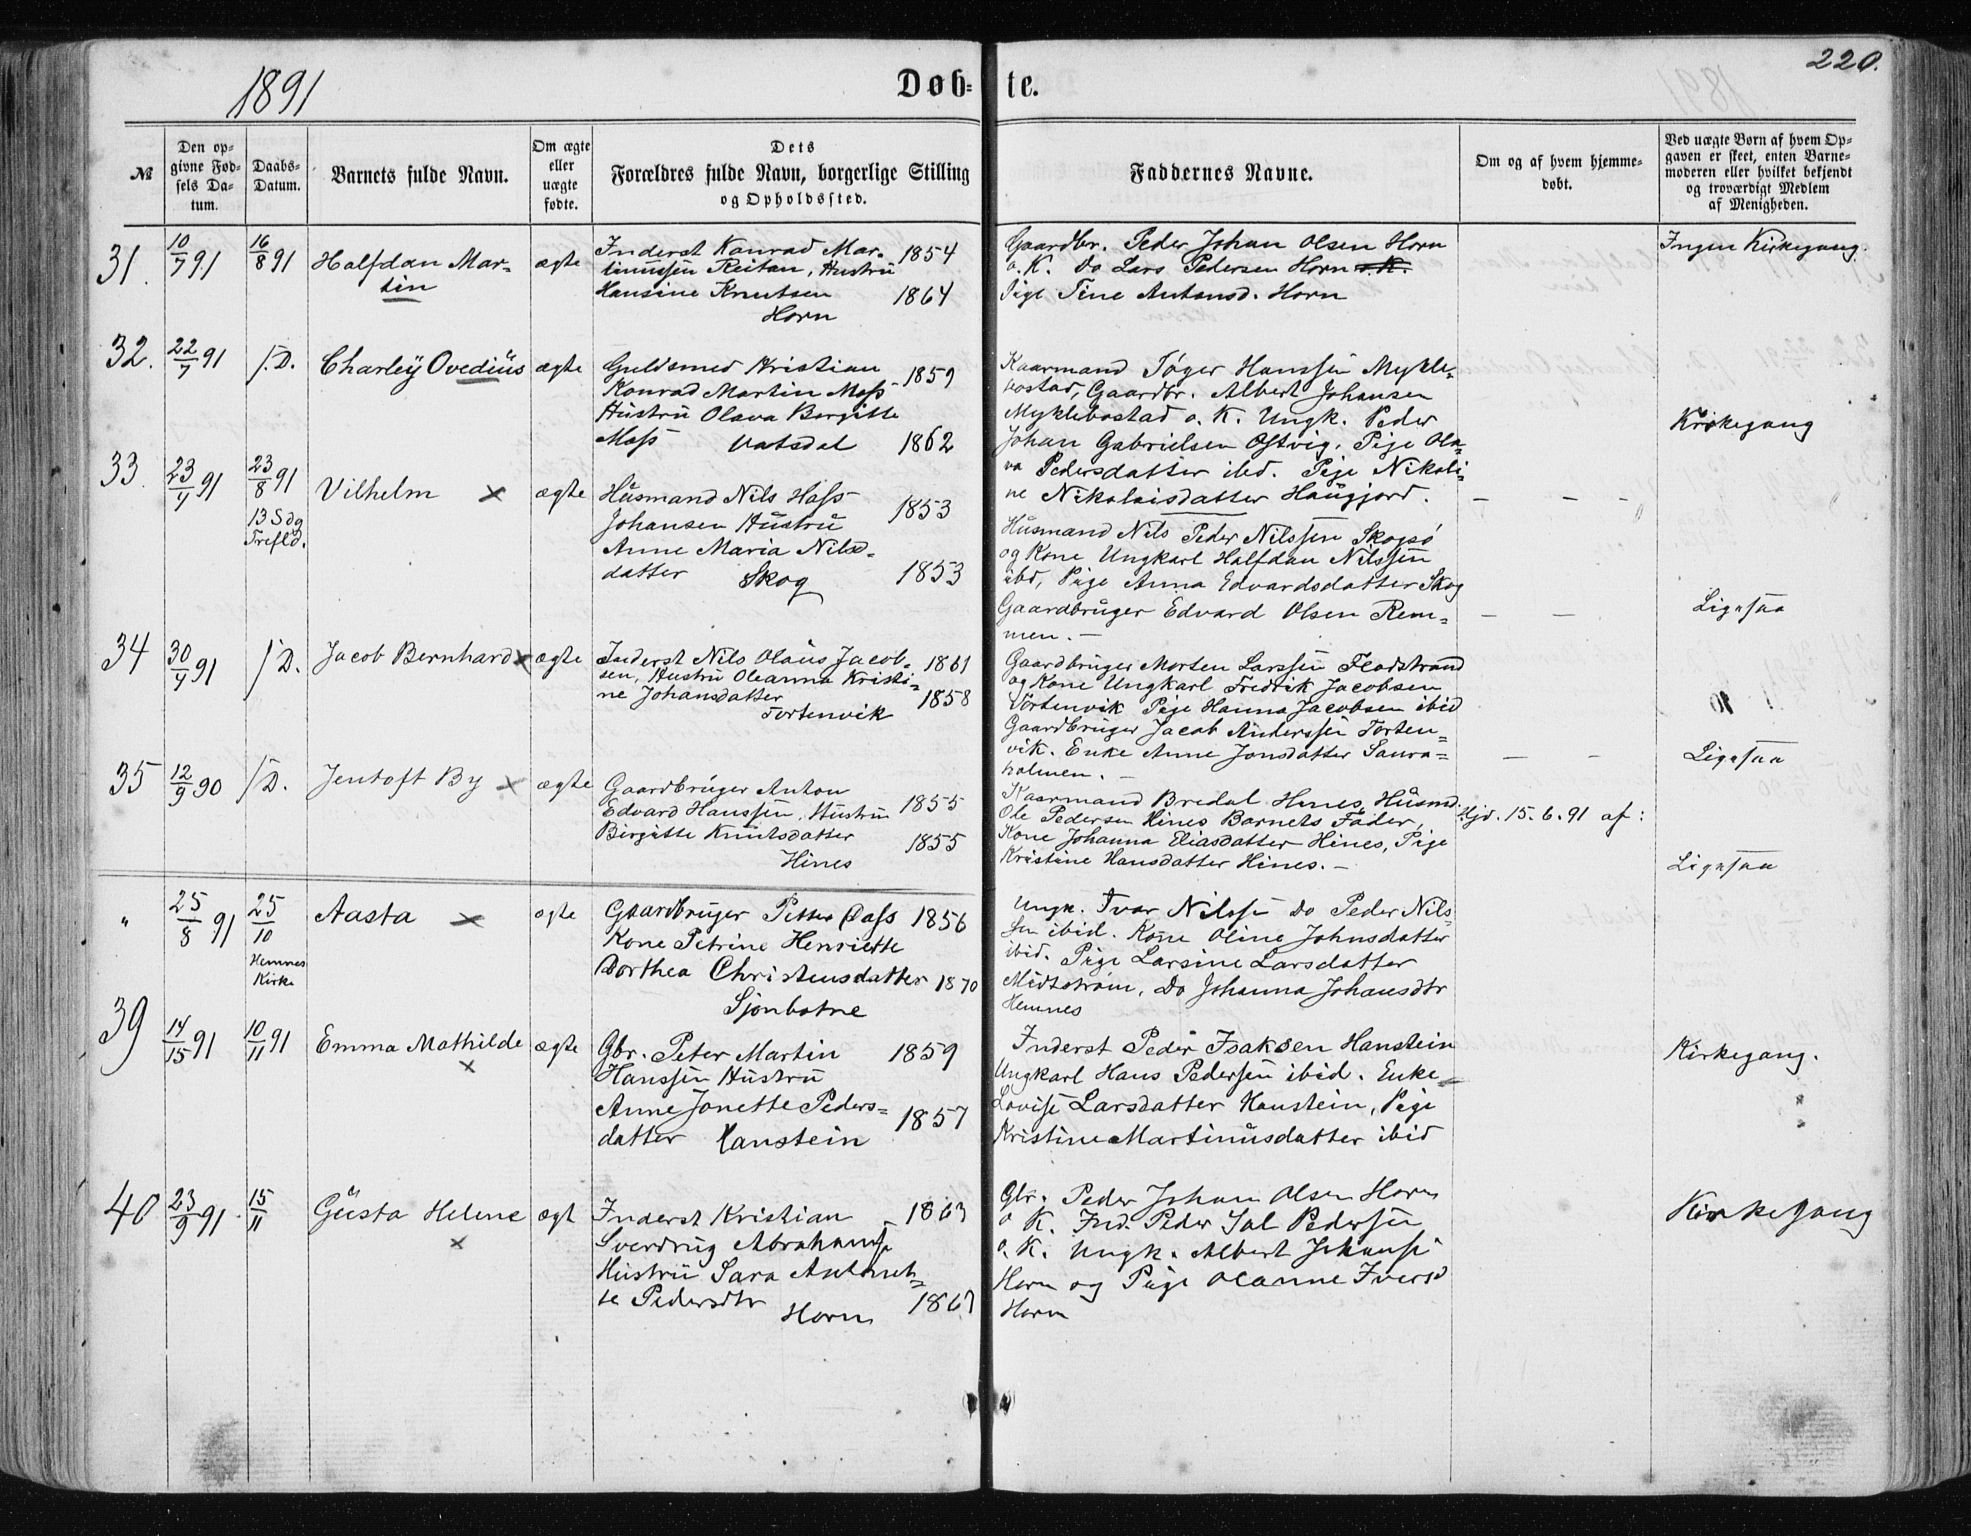 1891
Døb-
te.
220.
№
Den op-
givne Fød-
sels Da-
tum.
Daabs-
Datum.
Barnets fulde Navn.
Om ægte
eller
uægte
fødte.
Dets
Forældres fulde Navn, borgerlige Stilling
og Opholdssted.
Faddernes Navne.
Om og af hvem hjemme-
døbt.
Ved uægte Børn af hvem Op-
gaven er skeet, enten Barne-
moderen eller hvilket bekjendt
og troværdigt Medlem
af Menigheden.
31.
10/7 91
16/8 91
Halfdan Mar-
tin
ægte
Inderst Konrad Mar- 1854
tinussen Reitan, Hustru
Hansine Knutsen 1864
Horn
Gaardbr. Peder Johan Olsen Horn
o. K. Do Lars Pedersen Horn o. K.
Pige Tine Antonsd. Horn
Ingen Kirkegang.
32.
22/7 91
s. D.
Charley Ovedius
ægte
Guldsmed Kristian
Konrad Martin Moss 1859
Hustru Olava Bergitte
Moss Vatsdal 1862
Kaarmand Tøger Hanssen Mykle-
bostad, Gaardbr. Albert Johansen
Myklebostad o. K. Ungk. Peder
Johan Gabrielsen Østvig, Pige Ola-
va Pedersdatter ibd. Pige Nikoli-
ne Nikolaisdatter Haugjord.
Kirkegang
33.
23/7 91
23/8 91
13 Sdg
Trefld.
Vilhelm ×
ægte
Husmand Nils Hass
Johansen Hustru 1853
Anne Maria Nils-
datter Skog 1853
Husmand Nils Peder Nilssen Skogsø
og Kone Ungkarl Halfdan Nilssen
ibd, Pige Anna Edvardsdatter Skog
Gaardbruger Edvard Olsen Rem-
men. —
Ligesaa
34
30/7 91
s. D.
Jacob Bernhard ×
ægte
Inderst Nils Olaus Jacob- 1861
sen, Hustru Oleanna Kristi-
ne Johansdatter 1858
Tortenvik
Gaardbruger Morten Larssen Flodstrand
og Kone Ungkarl Fredrik Jacobsen
Tortenvik Pige Hanna Jacobsen ibid
Gaardbruger Jacob Anderssen Torten-
vik. Enke Anne Jonsdatter Saura-
holmen. —
Ligesaa
35
12/9 90
s. D.
Jentoft By ×
ægte
Gaardbruger Anton
Edvard Hanssen, Hustru 1855
Birgitte Knutsdatter 1855
Hines
Kaarmand Bredal Hines, Husmd.
Ole Pedersen Hines Barnets Fader,
Kone Johanna Eliasdatter Hines, Pige
Kristine Hansdatter Hines. —
Hjd. 15. 6. 91 af:
Ligesaa
"
25/8 91
25/10
Hemnes
Kirke
Aasta ×
ægte
Gaardbruger Petter Dass 1856
Kone Petrine Henriette
Dorthea Christensdatter 1870
Sjonbotne
Ungk. Ivar Nilsse Do Peder Nils-
sen ibid. Kone Oline Johnsdatter
ibid. Pige Larsine Larsdatter
Midtstrøm, Do Johanna Johansdtr
Hemnes
39
14/15 91
10/11 91
Emma Mathilde
×
ægte
Gbr. Peter Martin 1859
Hanssen Hustru
Anne Jonette Peders- 1857
datter Hanstein
Inderst Peder Isaksen Hanstein
Ungkarl Hans Pedersen ibid. Enke
Lovise Larsdatter Hanstein, Pige
Kristine Martinusdatter ibid
Kirkegang.
40
23/9 91.
15/11
Gusta Helene
×
ægt
Inderst Kristian 1863
Sverdrug Abrahams
Hustru Sara Antonet-
te Pedersdtr Horn
Gbr. Peder Johan Olsen Horn
o K. Ind. Peder Sal Pedersen
o. K. Ungk. Albert Johanse
Horn og Pige Olanne Iversd
Horn
Kirkegang